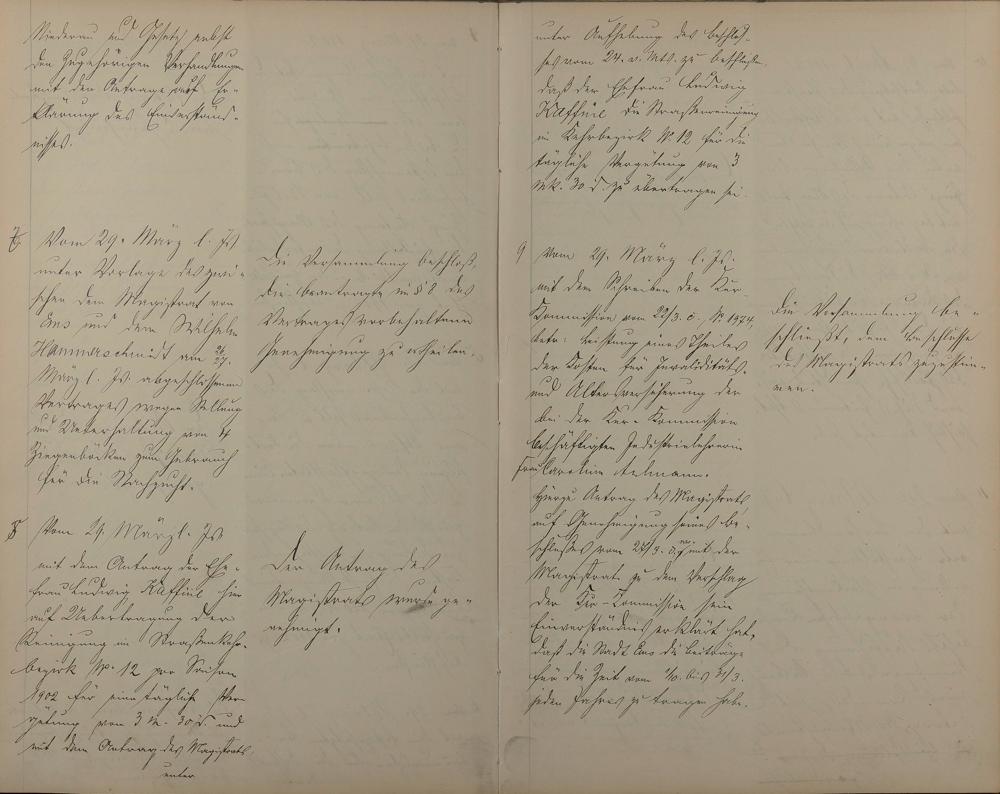 Niederau und Gesetz nebst
den zugehörigen Verhandlungen
mit dem Antrage auf Er-
klärung des Einverständ-
nisses.
7. Vom 29. März l. Js
unter Vorlage des zwi-
schen dem Magistrat von
Ems und dem Wilhelm
Hammerschmidt am 26/27.
März l. Js. abgeschlossenen
Vertrages wegen Stellung
und Unterhaltung von 4
Ziegenböcken zum Gebrauch
für die Nachzucht.
Die Versammlung beschloß,
die beantragte im § 8 des
Vertrages vorbehaltene
Genehmigung zu erteilen.
8 Vom 29. März l. Js
mit dem Antrag der Ehe-
frau Ludwig Kaffine hier
auf Uebertragung der
Reinigung im Straßenkehr-
bezirk Nr. 12 pro Saison
1902 für eine tägliche Ver-
gütung von 3 M. 30 d. und
mit dem Antrag des Magistrats
unter
Der Antrag des
Magistrats wurde ge-
nehmigt.
unter Aufhebung des Beschlus-
ses vom 24. v. Mts. zu beschließen,
daß der Ehefrau Ludwig
Kaffine die Straßenreinigung
im Kehrbezirk Nr. 12 für die
tägliche Vergütung von 3
Mk. 30 d. zu übertragen sei.
9 Vom 29. März l. Js.
mit dem Schreiben der Kur-
Kommission vom 22/3. c. Nr. 1374,
betr: Leistung eines Theiles
der Kosten für Invaliditäts-
und Altersversicherung der
bei der Kur-Kommission
beschäftigten Industrielehrerin
Frau Caroline
Hierzu Antrag des Magistrats
auf Genehmigung seines Be-
schlusses vom 27/3. c., mit der
Magistrat zu dem Vorschlag
der Kur-Kommission sein
Einverständnis erklärt hat,
daß die Stadt Ems die Beiträge
für die Zeit vom 1/10. bis 31/3.
jeden Jahres zu tragen habe.
Die Versammlung be-
schließt, dem Beschlusse
des Magistrats zuzustim-
men.